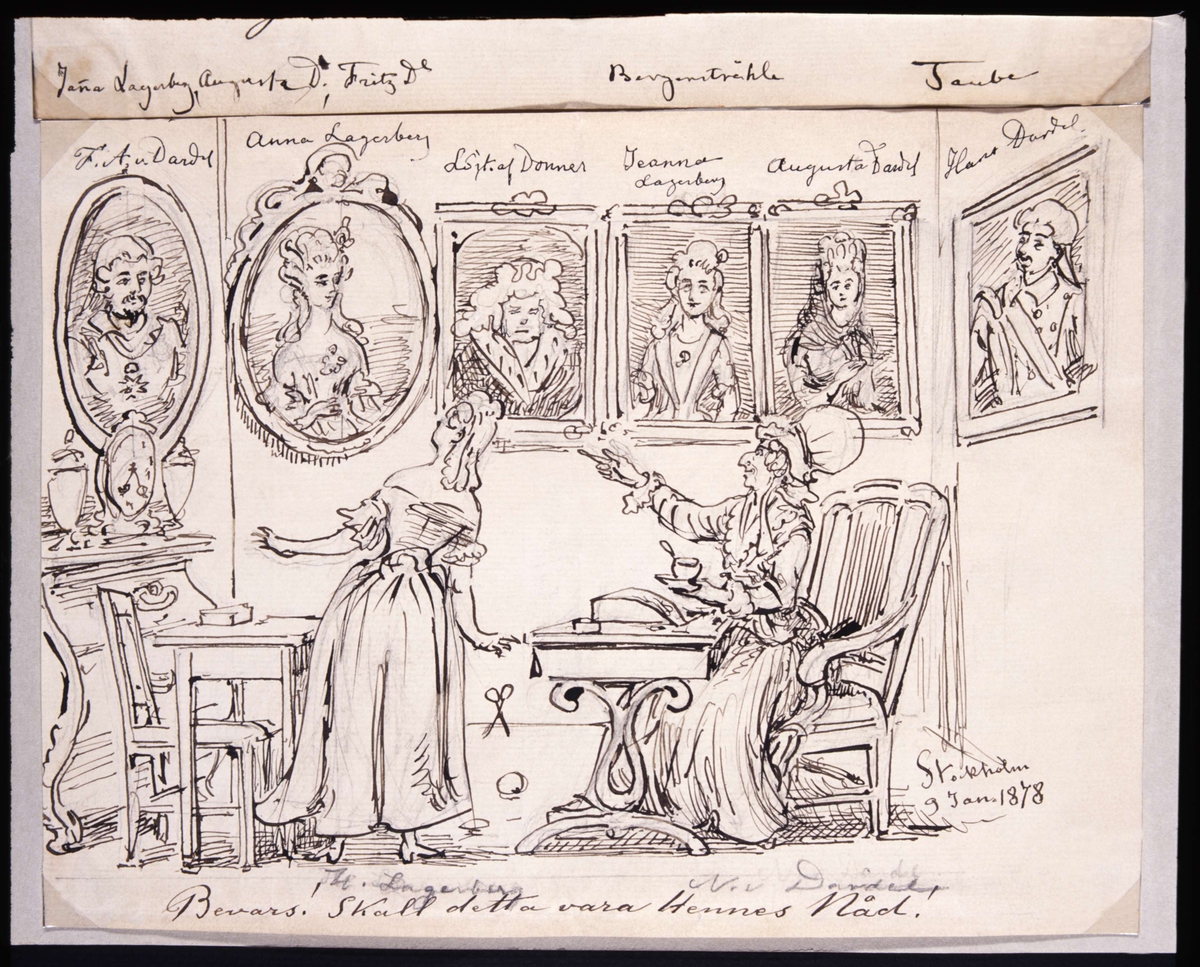 Jaña Lagerberg, Augusta Dl, Fritz Dl Bergenstråhle Taube
F. A. v. Dardel
Anna Lagerberg
Löjt. af Donner
Jeanna
Lagerberg
Augusta Dardel
Hans Dardel.
Stockholm
9 Jan. 1878
H. Lagerberg N. v Dardel
Bevars! Skall detta vara Hennes Nåd!